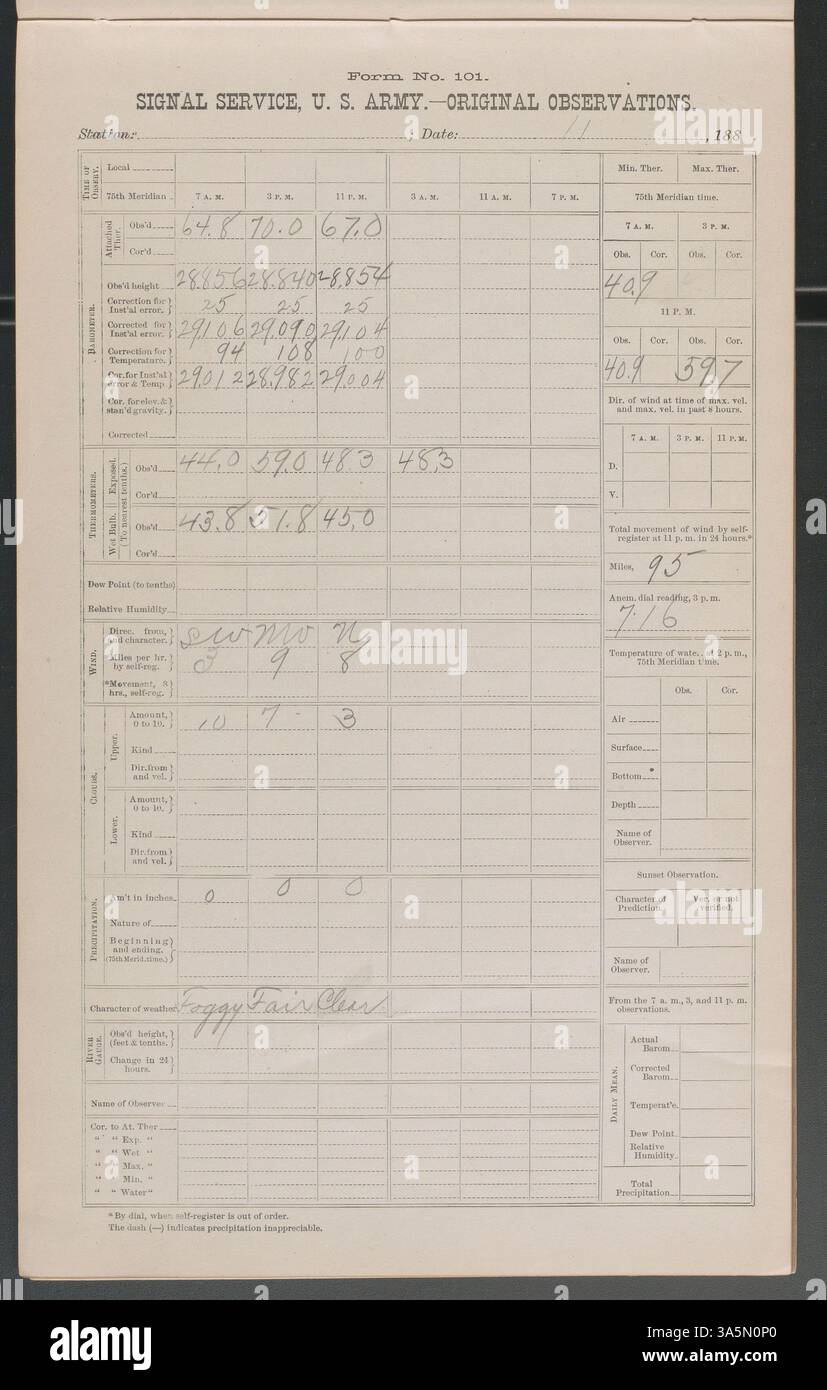 Form No. 101.
SIGNAL SERVICE, U. S. ARMY.—ORIGINAL OBSERVATIONS.
Station: ; Date: 11 , 188 .
TIME OF OBSERV.
Local
75th Meridian 7 A. M. 3 P. M. 11 P. M. 3 A. M. 11 A. M. 7 P. M.
BAROMETER.
Attached Ther.
Obs'd 64.8 70.0 67.0
Cor'd
Obs'd height 28.856 28.840 28.854
Correction for Inst'al error. 25 25 25
Corrected for Inst'al error. 29.106 29.090 29.104
Correction for Temperature. 94 108 100
Cor. for Inst'al error & Temp. 29.012 28.982 29.004
Cor. for elev. & stan'd gravity.
Corrected
THERMOMETERS.
(To nearest tenths.)
Exposed.
Obs'd 44.0 59.0 48.3 48.3
Cor'd
Wet Bulb.
Obs'd 43.8 51.8 45.0
Cor'd
Dew Point (to tenths)
Relative Humidity
WIND.
Direc. from, and character. SW NW N
Miles per hr. by self-reg. 3 9 8
*Movement, 8 hrs., self-reg.
CLOUDS.
Upper.
Amount, 0 to 10. 10 7 3
Kind
Dir. from and vel.
Lower.
Amount, 0 to 10.
Kind
Dir. from and vel.
PRECIPITATION.
Am't in inches. 0 0 0
Nature of
Beginning and ending.
(75th Merid. time.)
Character of weather. Foggy Fair Clear
RIVER GAUGE.
Obs'd height, (feet & tenths.)
Change in 24 hours.
Name of Observer
Cor. to At. Ther
" " Exp. "
" " Wet "
" " Max. "
" " Min. "
" " Water "
Min. Ther. Max. Ther.
75th Meridian time.
7 A. M. 3 P. M.
Obs. Cor. Obs. Cor.
40.9
11 P. M.
Obs. Cor. Obs. Cor.
40.9 59.7
Dir. of wind at time of max. vel. and max. vel. in past 8 hours.
7 A. M. 3 P. M. 11 P. M.
D.
V.
Total movement of wind by self-register at 11 p. m. in 24 hours.*
Miles, 95
Anem. dial reading, 3 p. m.
716
Temperature of water at 2 p. m., 75th Meridian time.
Obs. Cor.
Air
Surface
Bottom
Depth
Name of Observer.
Sunset Observation.
Character of Prediction. Ver. or not verified.
Name of Observer.
From the 7 a. m., 3, and 11 p. m. observations.
DAILY MEAN.
Actual Barom
Corrected Barom
Temperat'e.
Dew Point
Relative Humidity
Total Precipitation
* By dial, when self-register is out of order.
The dash (—) indicates precipitation inappreciable.
alamy
Image ID: 3A5N0P0
www.alamy.com